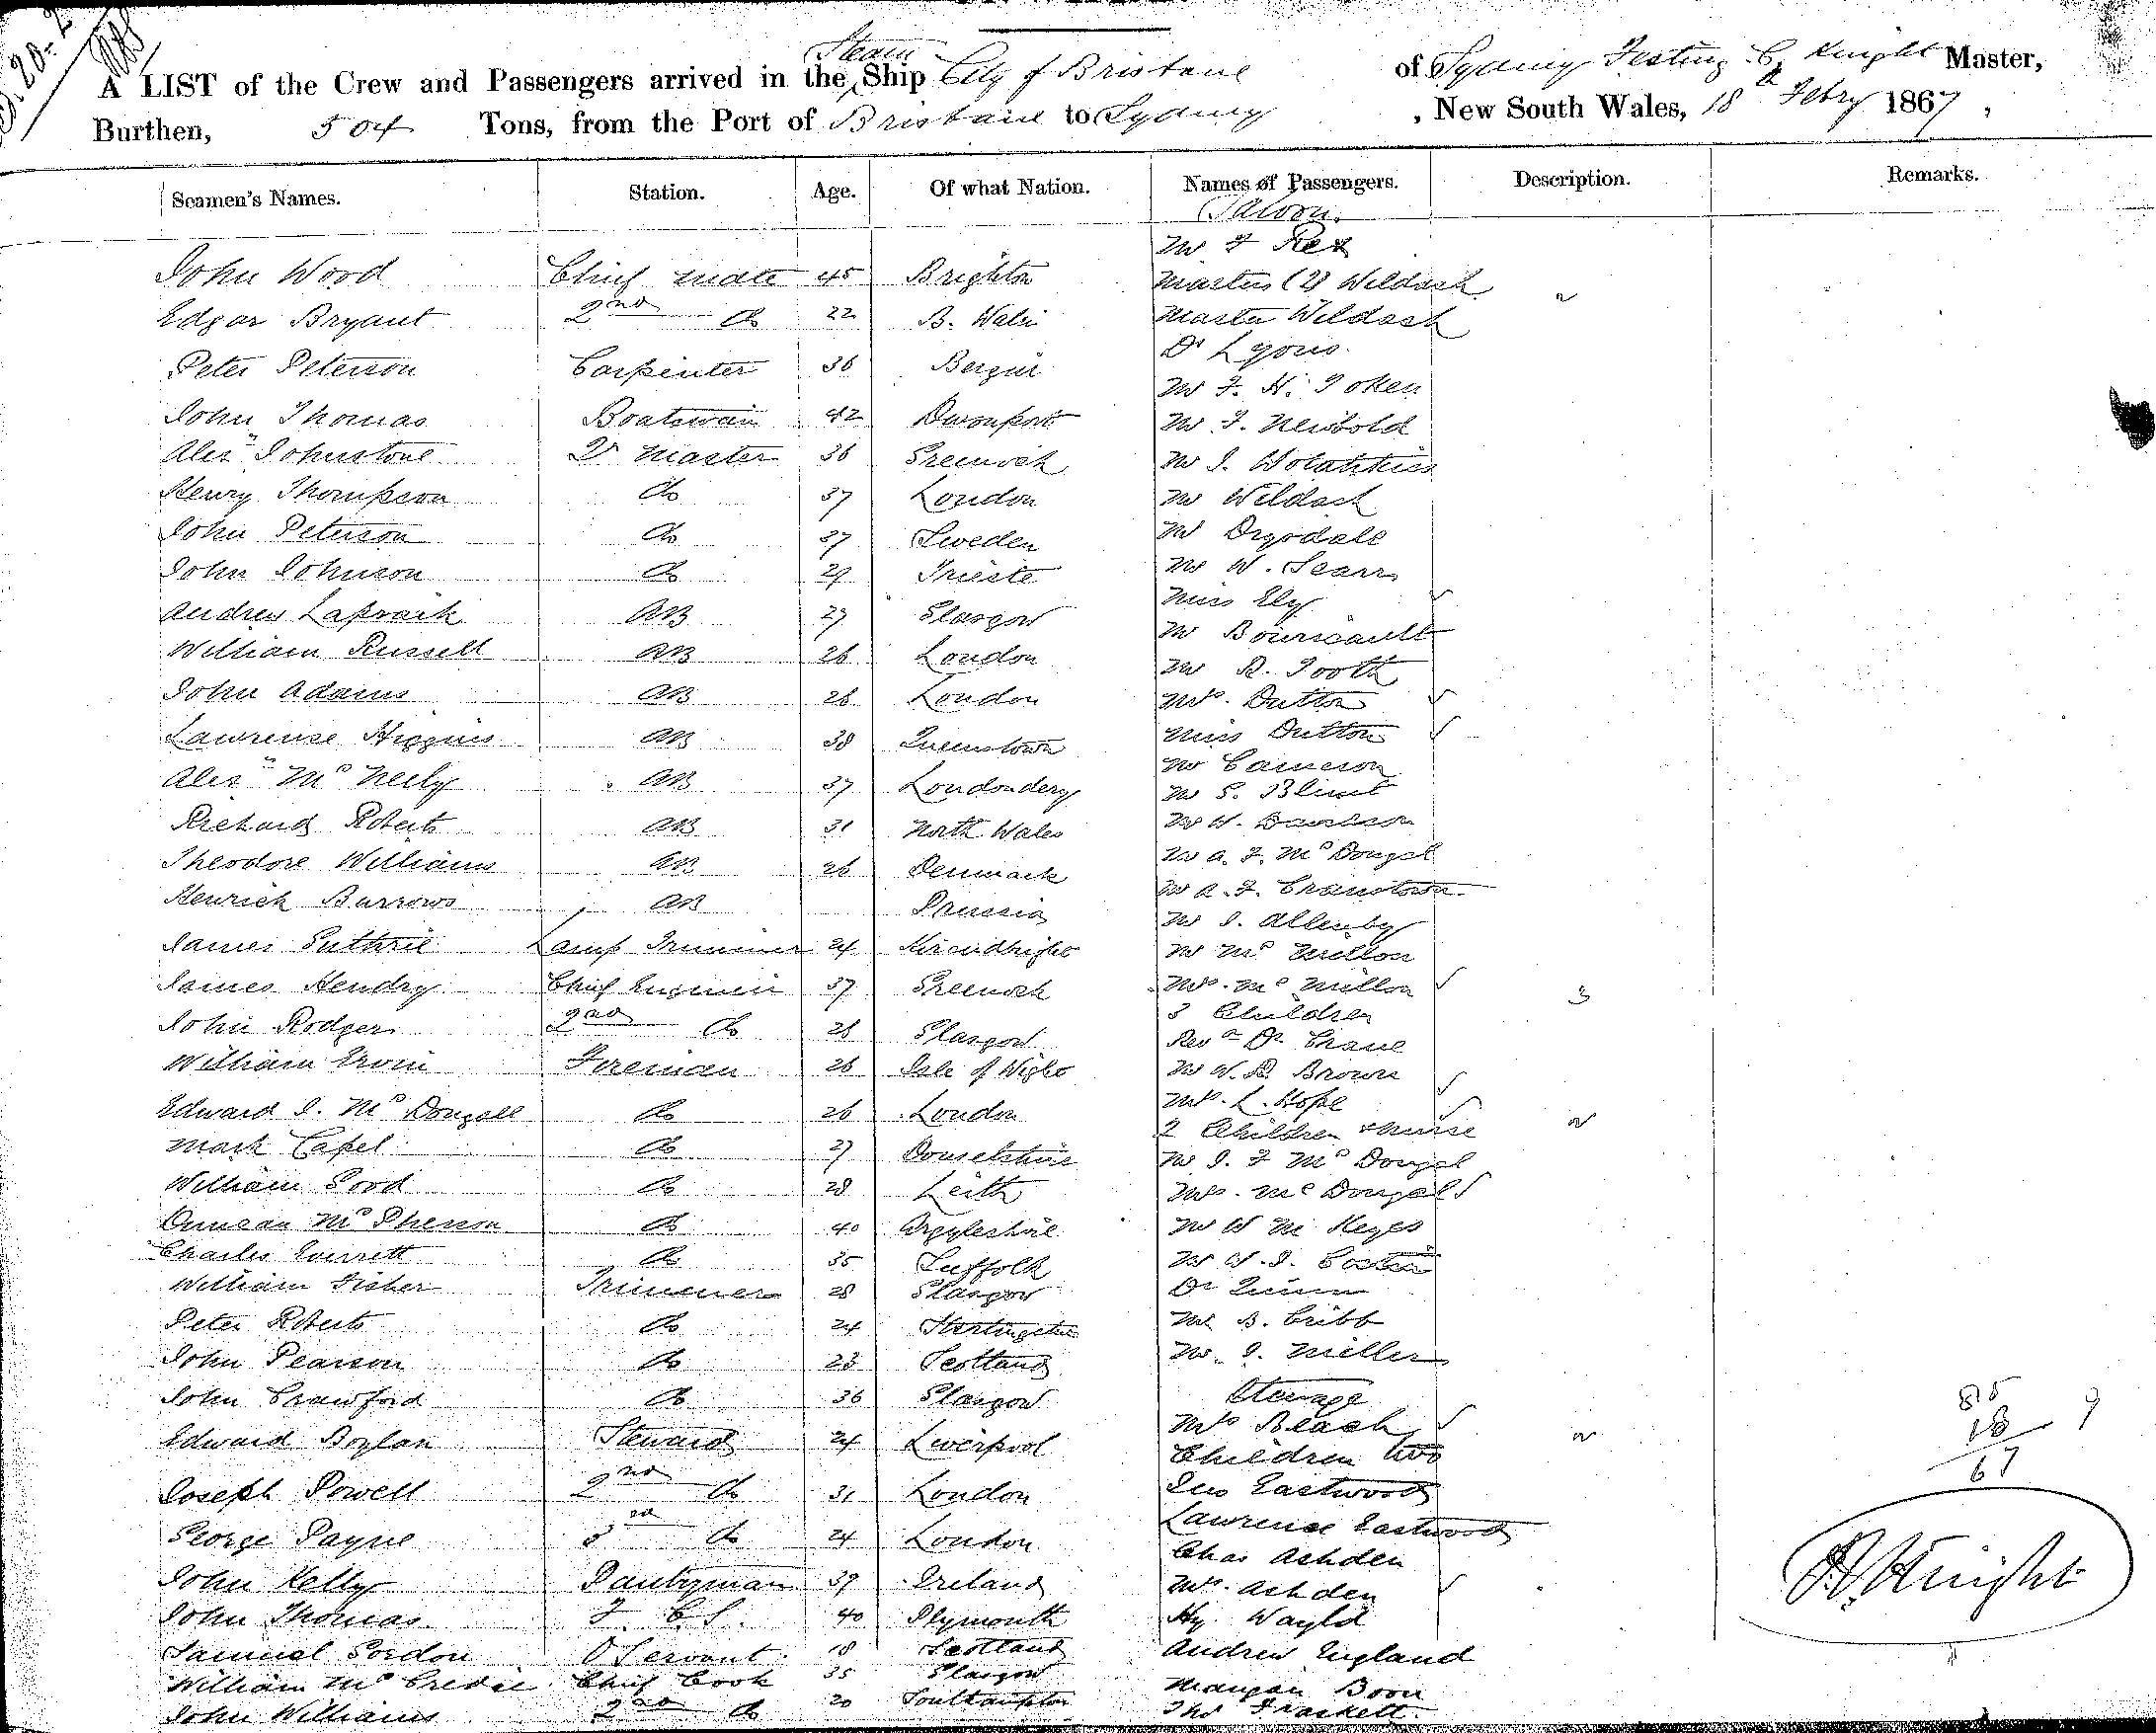 A LIST of the Crew and Passengers arrived in the Steam Ship City of Brisbane of Sydney Festing C Knight Master,
Burthen, 504 Tons, from the Port of Brisbane to Sydney , New South Wales, 18th Febry 1867 ,
Seamen's Names. Station. Age. Of what Nation. Names of Passengers. Description. Remarks.
Saloon.
Mr F Rex
John Wood Chief mate 45 Brighton Masters (2) Weldash 2
Edgar Bryant 2nd Do 22 Master Wildash
Dr Lyons
Peter Peterson Carpenter 36 Bergen
Mr F. H.
John Thomas Boatswain 42 Devonport Mr J. Newbold
Alexr Johnstone Qr Master 36 Greenock Mr J.
Henry Thompson Do 37 London Mr Wildash
John Peterson Do 37 Sweden Mr Drysdale
John Johnson Do 29 Trieste Mr W. Scarr
Andrew Lapraik AB 27 Glasgow Miss Ely
William Russell AB 26 London Mr Boursiault
Mr R. Tooth
John Adams AB 28 London Mrs. Dutton
Lawrence Higgins AB 38 Queenstown Miss Dutton
Alexr McNeily AB 37 Londondery Mr Cameron
Mr S. Blunt
Richard Roberts AB 31 North Wales Mr W. Davidson
Theodore Williams AB 26 Denmark Mr A. F. McDougal
Henrich Burrows AB Prussia Mr A. F. Cranstown
Mr J. Allenby
James Guthrie Lamp Trimmer 24 Kircudbright Mr McMillon
James Hendry Chief Engineer 37 Greenock Mrs. McMillon
3 Children 3
John Rodger 2nd Do 28 Glasgow Revd Dr Crane
William Irvin Fireman 26 Isle of Wight Mr W. D. Brown
Edward J. McDougall Do 26 London Mrs. L. Hope
2 Children & nurse 2
Mark Capel Do 27 Mr J. F McDougal
William Good Do 28 Leith Mrs. McDougal
Duncan McPherson Do 40 Argyleshire Mr W M Keyes
Charles Everett Do 35 Suffolk Mr W. J.
William Fisher Trimmer 28 Glasgow Dr Quinn
Peter Roberts Do 24 Mr B. Cribb
John Pearson Do 23 Scotland Mr. J. Miller
John Crawford Do 36 Glasgow Steerage 85
Mrs Beach 18 9
Edward Boylan Steward 24 Liverpool Children two 2 67
Joseph Powell 2nd Do 31 London Geo Eastwood
George Payne 3rd Do 24 London Lawrence Eastwood
Chas Ashden
John Kelly Pantryman 39 Ireland Mrs. Ashden
John Thomas F. C. S. 40 Plymouth Hy. Wayld
Knight
Samuel Gordon O Servant 18 Scotland Andrew England
William McCredie Chief Cook 35 Glasgow Boon
John Williams 2nd Do 20 Southampton Thos Fraskett